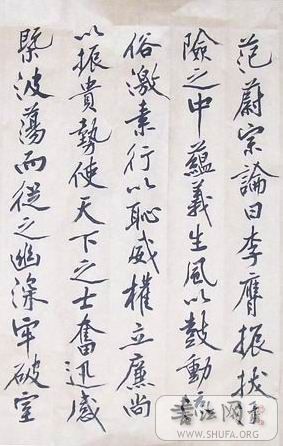 范蔚宗論曰李膺振拔
險之中蘊義生風以鼓動流
俗激素行以恥威權立廉尚
以振貴勢使天下之士奮迅感
槩波蕩而從之幽深牢破室
书法网
WWW.SHUFA.ORG